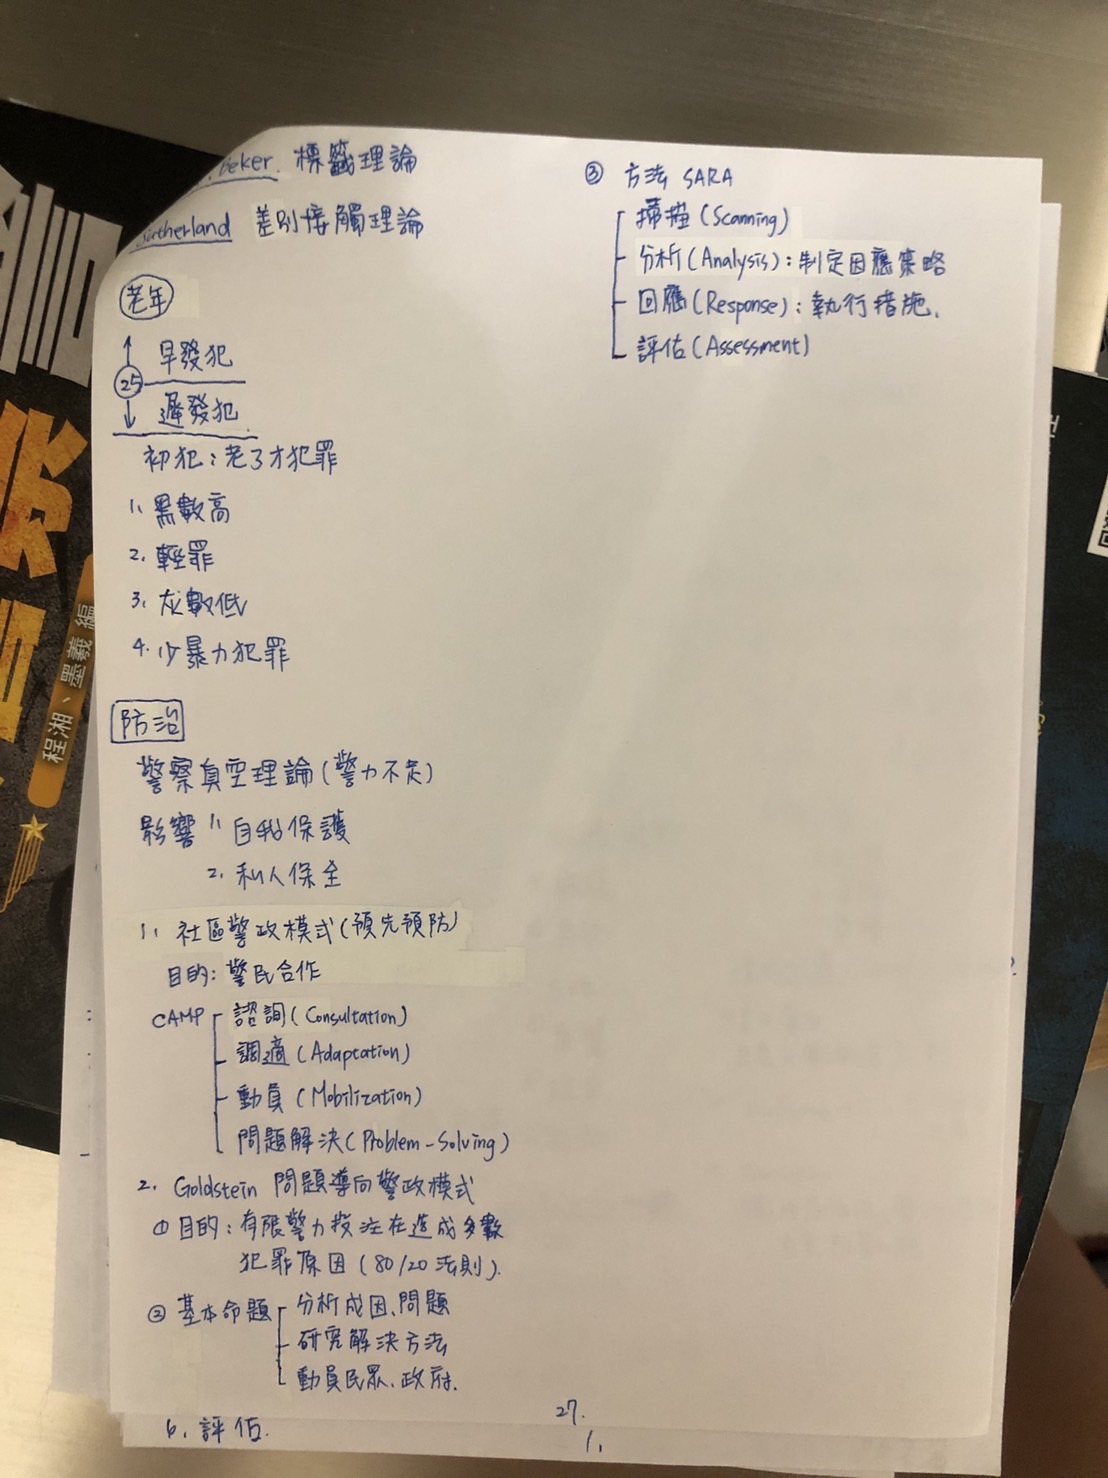 Beker. 標籤理論
Sutherland 差別接觸理論
老年
早發犯
25
遲發犯.
初犯：老了才犯罪
1. 黑數高
2. 輕罪
3. 灰數低
4. 少暴力犯罪
防治
警察真空理論(警力不足)
影響 1. 自我保護
2. 私人保全
1. 社區警政模式(預先預防)
目的：警民合作
CAMP
諮詢(Consultation)
調適(Adaptation)
動員(Mobilization)
問題解決(Problem-Solving)
2. Goldstein 問題導向警政模式
① 目的：有限警力投注在造成多數
犯罪原因(80/20法則).
② 基本命題
分析成因、問題
研究解決方法
動員民眾、政府.
27.
6. 評估.
1.
③ 方法 SARA
掃描(Scanning)
分析(Analysis)：制定因應策略
回應(Response)：執行措施.
評估(Assessment)
程湘、墨羲 編